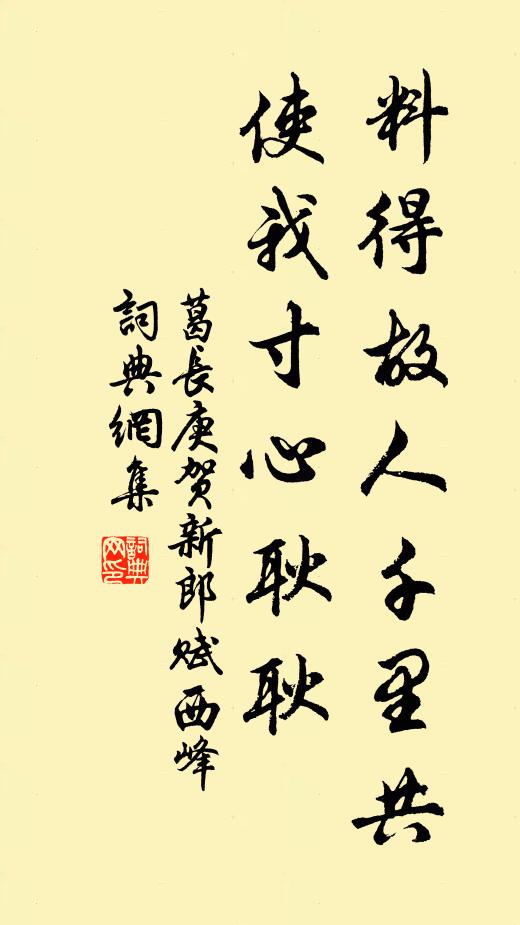 料得故人千里共
使我寸心耿耿
葛長庚賀新郎賦西峰
詞典網集
詞典网印